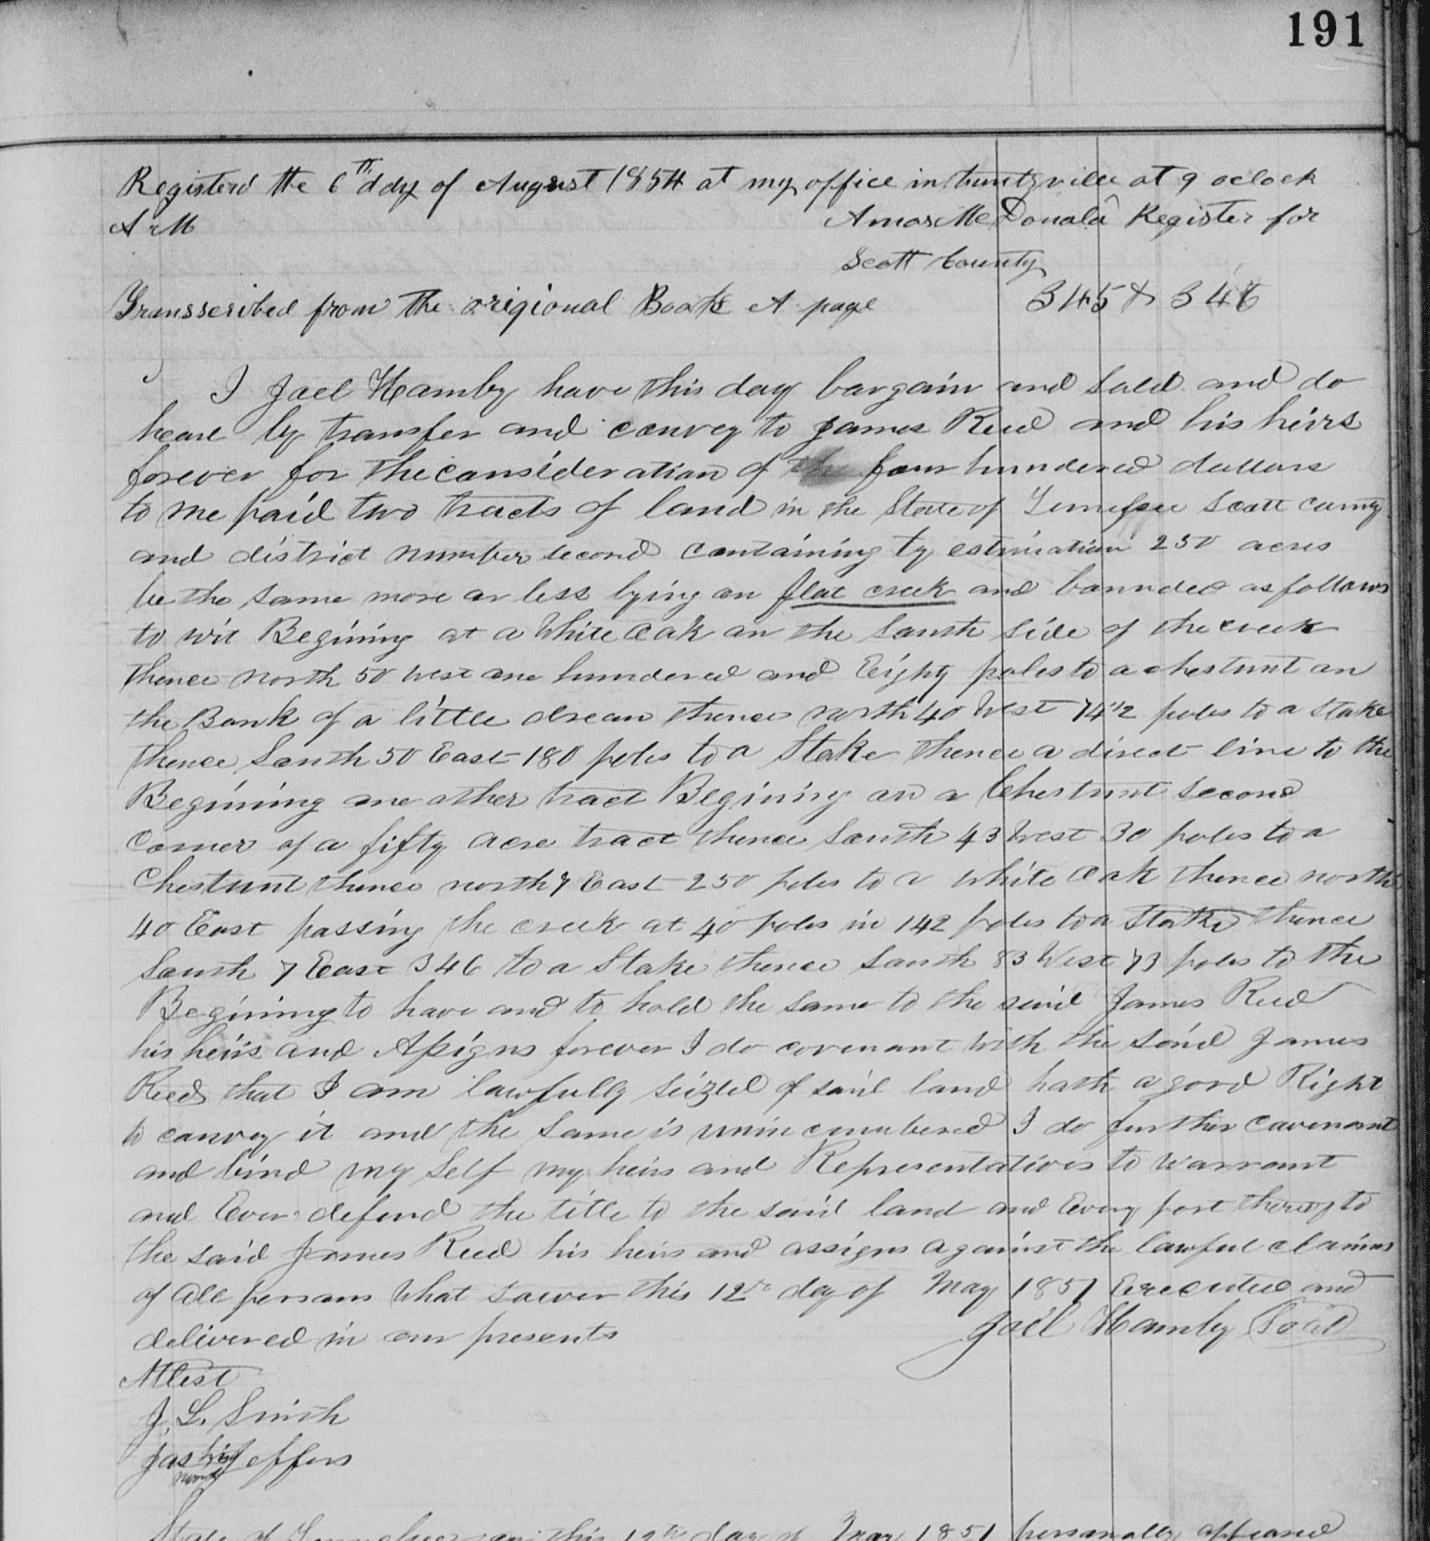 191
Registerd the 6th ddy of August 1854 at my office in huntzville at 9 oclock
A M Amos McDonald Register for
Scott County
Transscribed from the origional Book A page 345 & 346
I Jael Hamby have this day bargain and sold and do
heare by transfer and convey to James Reed and his heirs
forever for the consideration of the four hundered dollars
to me paid two tracts of land in the State of Tennessee Scott County
and district number second containing by estimation 250 acres
be the same more or less lying on flat creek and bounded as follows
to wit Begining at a White Oak on the South Side of the creek
thence north 50 west one hundered and Eighty poles to a chestnut on
the Bank of a little drean thence north 40 West 74 1/2 poles to a Stake
thence South 50 East 180 poles to a Stake thence a direct line to the
Begining one other tract Begining on a Chestnut second
Corner of a fifty acre tract thence South 43 West 30 poles to a
Chestnut thence north 7 East 250 poles to a White Oak thence north
40 East passing the creek at 40 poles in 142 poles to a Stake thence
South 7 East 346 to a Stake thence South 83 West 73 poles to the
Begining to have and to hold the same to the said James Reed
his heirs and Assigns forever I do covenant with the said James
Reed that I am lawfully seized of said land hath a good Right
to convey it and the same is unincumbered I do further Covenant
and bind my Self my heirs and Representatives to warrant
and Ever defend the title to the said land and Every part thereof to
the said James Reed his heirs and assigns against the lawful claims
of all persons What soever this 12th day of May 1851 Executed and
delivered in our presents Jael Hamby Seal
Attest
J. L. Smith
Jas his Jeffers
mark
State of Tennessee on this 12th day of May 1851 personally appeared